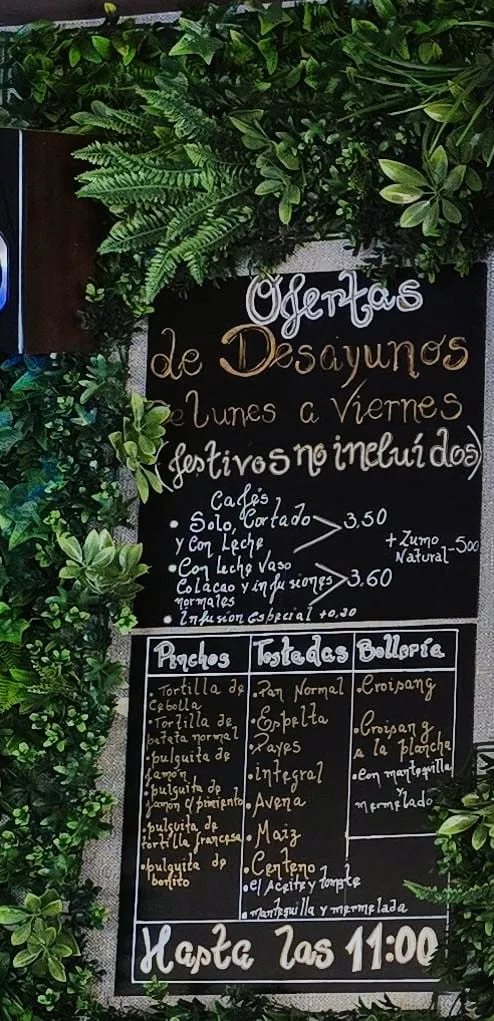 Ofertas
de Desayunos
de lunes a Viernes
(festivos no incluídos)
Cafés
• Solo, Cortado
y Con Leche
3,50
• Con leche Vaso
Colacao y infusiones
normales
3.60
+ Zumo
Natural - 5,00
• Infusion Especial +0,20
Pinchos
• Tortilla de
Cebolla
• Tortilla de
patata normal
• pulguita de
jamón
• pulguita de
jamón c/ pimiento
• pulguita de
tortilla francesa
• pulguita de
bonito
Tostadas
• Pan Normal
• Espelta
• Payes
• integral
• Avena
• Maiz
• Centeno
• c/ Aceite y tomate
• mantequilla y mermelada
Bollería
• Croisang
• Croisang
a la plancha
• Con mantequilla
y
mermelada
Hasta las 11:00